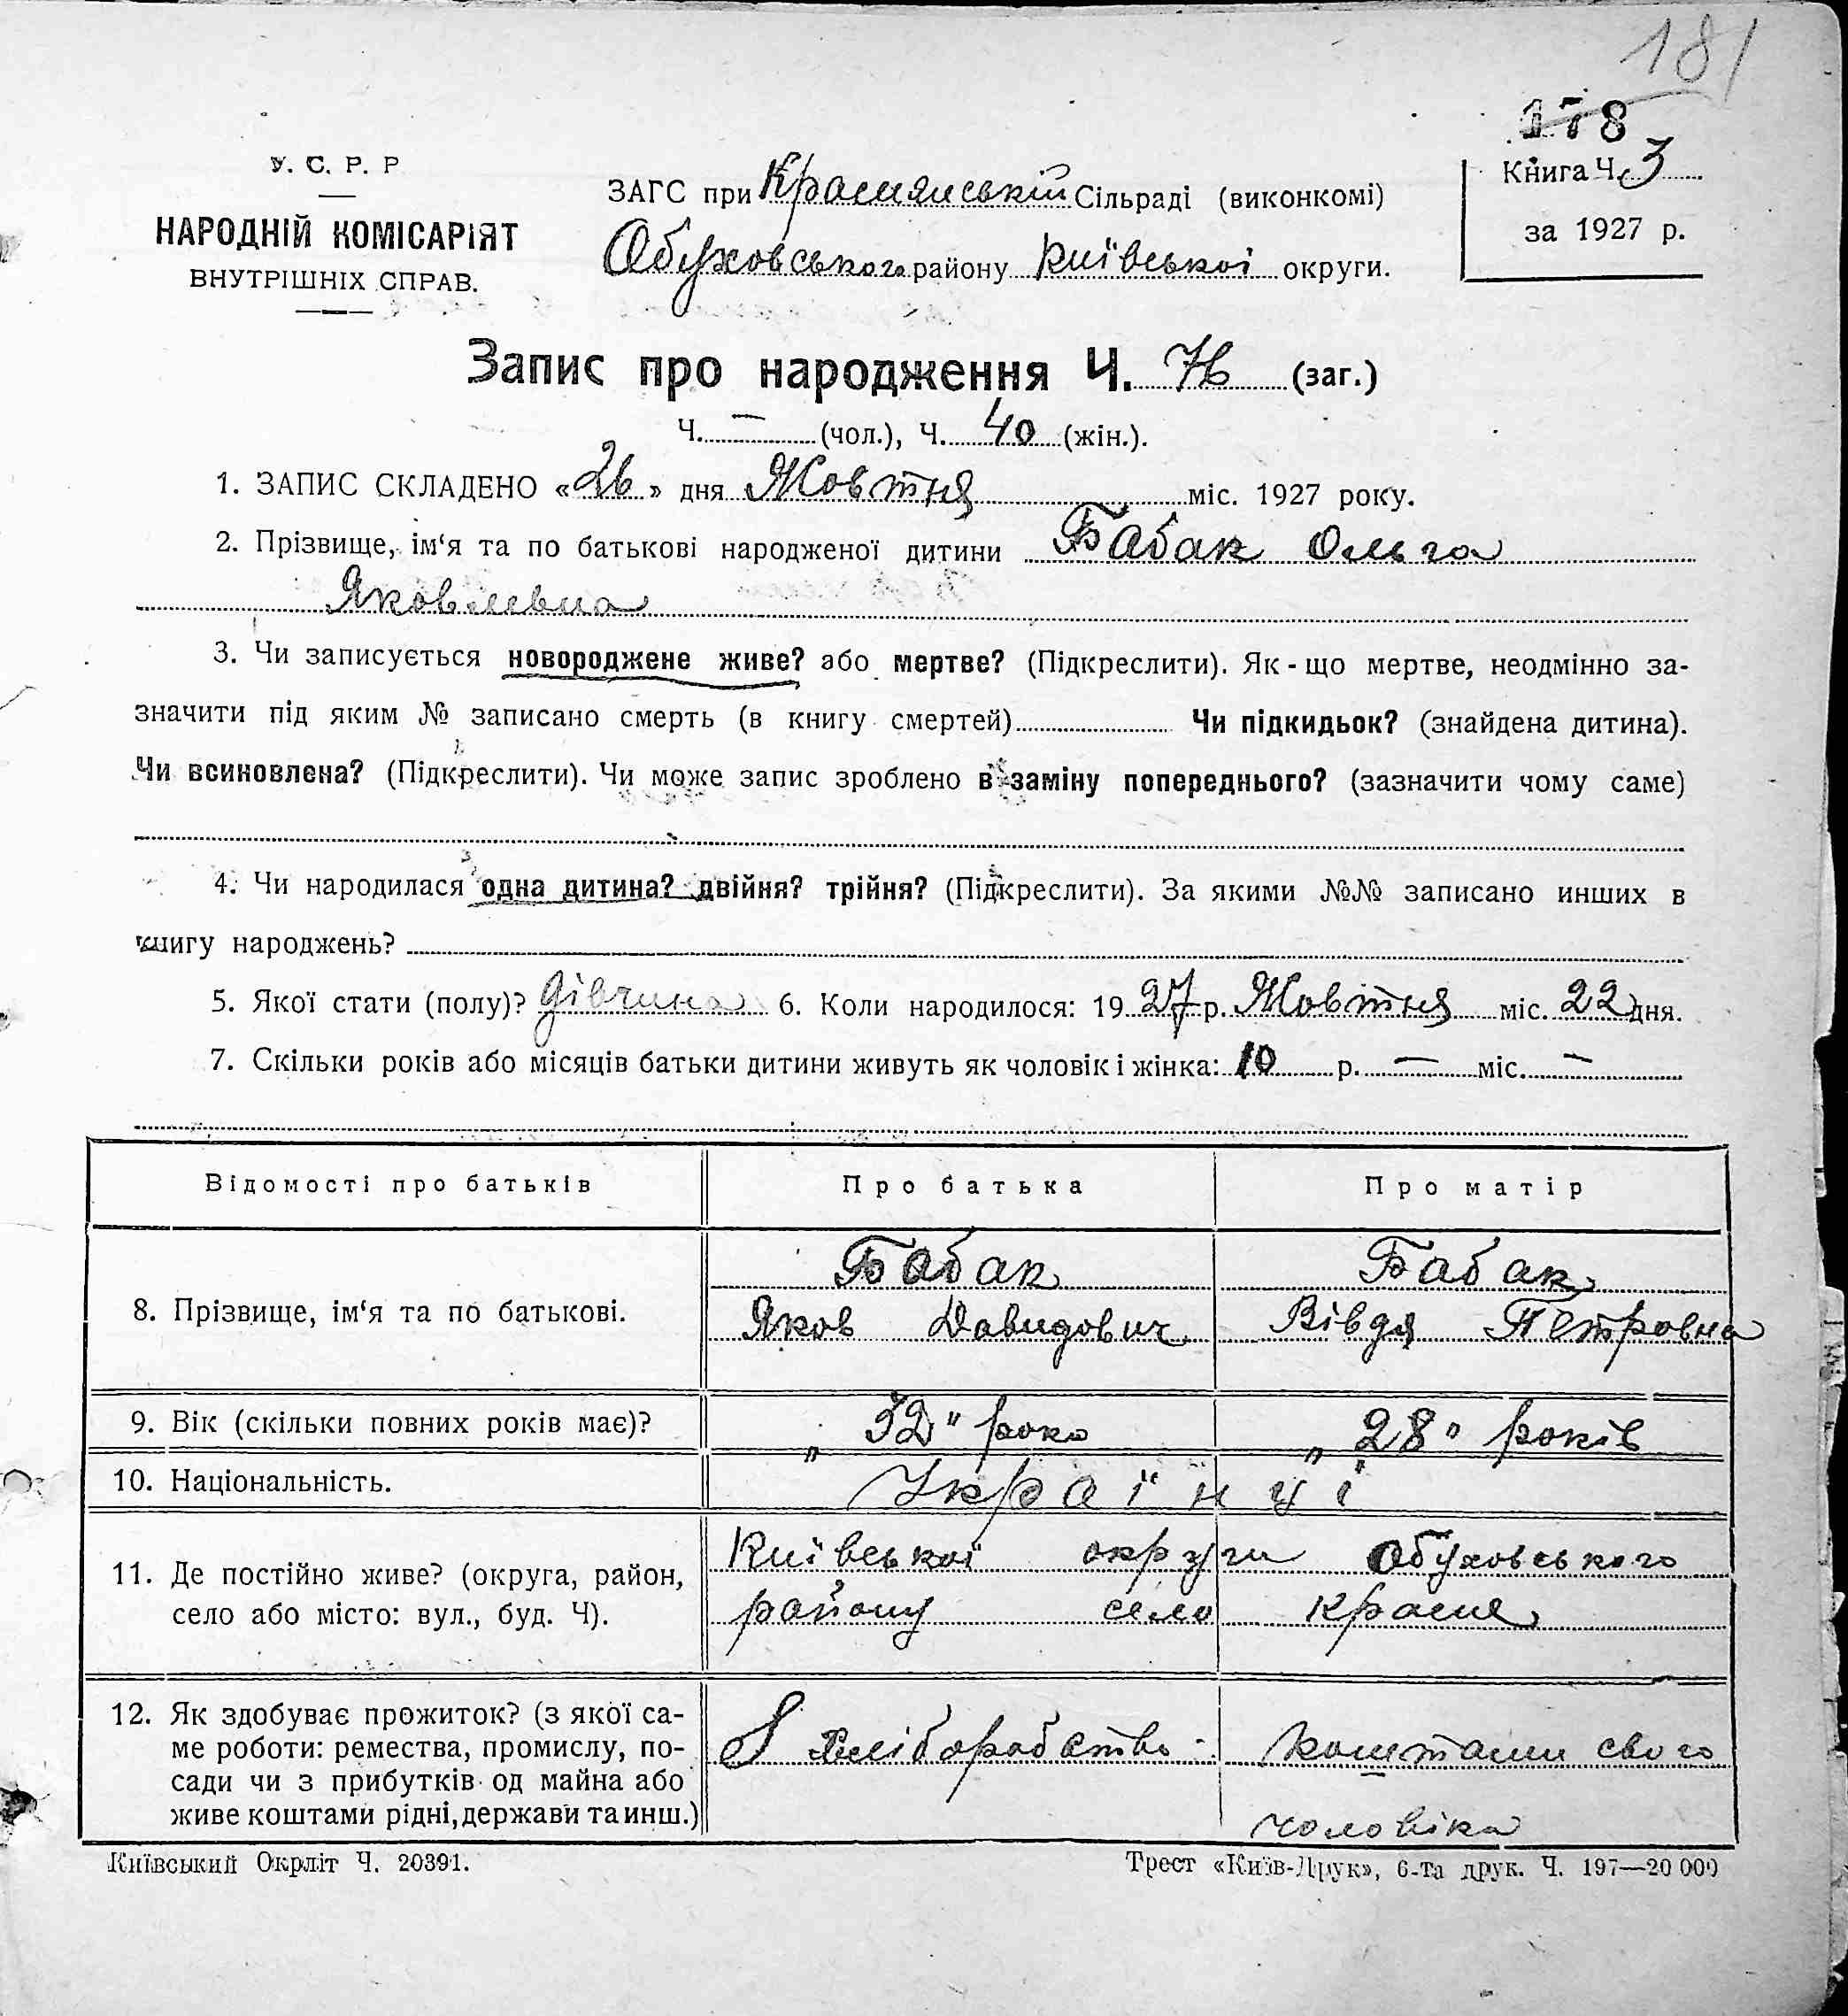 181
178
У. С. Р. Р
НАРОДНІЙ КОМІСАРІЯТ
ВНУТРІШНІХ СПРАВ.
ЗАГС при Краснянській Сільраді (виконкомі)
Обуховського району Київської округи.
Книга Ч. 3
за 1927 р.
Запис про народження Ч. 76 (заг.)
Ч. — (чол.), Ч. 40 (жін.).
1. ЗАПИС СКЛАДЕНО «26» дня Жовтня міс. 1927 року.
2. Прізвище, ім‘я та по батькові народженої дитини Бабак Ольга
Яковлевна
3. Чи записується новороджене живе? або мертве? (Підкреслити). Як-що мертве, неодмінно за-
значити під яким № записано смерть (в книгу смертей) Чи підкидьок? (знайдена дитина).
Чи всиновлена? (Підкреслити). Чи може запис зроблено в заміну попереднього? (зазначити чому саме)
4. Чи народилася одна дитина? двійня? трійня? (Підкреслити). За якими №№ записано инших в
книгу народжень?
5. Якої стати (полу)? дівчина 6. Коли народилося: 1927 р. Жовтня міс. 22 дня.
7. Скільки років або місяців батьки дитини живуть як чоловік і жінка: 10 р. — міс. —
Відомості про батьків Про батька Про матір
8. Прізвище, ім‘я та по батькові. Бабак Бабак
Яков Давидович Вівдя Петровна
9. Вік (скільки повних років має)? „32" роко „28" років
10. Національність. Українці
11. Де постійно живе? (округа, район, Київської округи Обуховського
село або місто: вул., буд. Ч). району село Красне
12. Як здобуває прожиток? (з якої са-
ме роботи: ремества, промислу, по- хліборобство коштами свого
сади чи з прибутків од майна або
живе коштами рідні, держави та инш.) чоловіка
Київський Окрліт Ч. 20391.
Трест «Київ-Друк», 6-та друк. Ч. 197—20 000